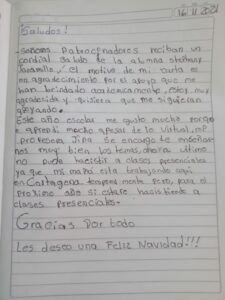 16/11/2021
Saludos!
señores Patrocinadores reciban un
cordial saludo de la alumna stefhany
Jaramillo, el motivo de mi carta es
en agradecimiento por el apoyo que me
han brindado academicamente, estoy muy
agradesida y quisiera que me siguieran
apoyando.
Este año escolar me gusto mucho porque
aprendi mucho apesar de lo virtual, mi
profesora Jina se encargo de enseñar
nos muy bien los temas, ahora ultimo
no pude hacistir a clases presenciales
ya que mi mamá esta trabajando aqui
en Cartagena temporalmente pero, para el
proximo año si estare hacistiendo a
clases presenciales.
Gracias Por todo
Les deseo una Feliz Navidad!!!